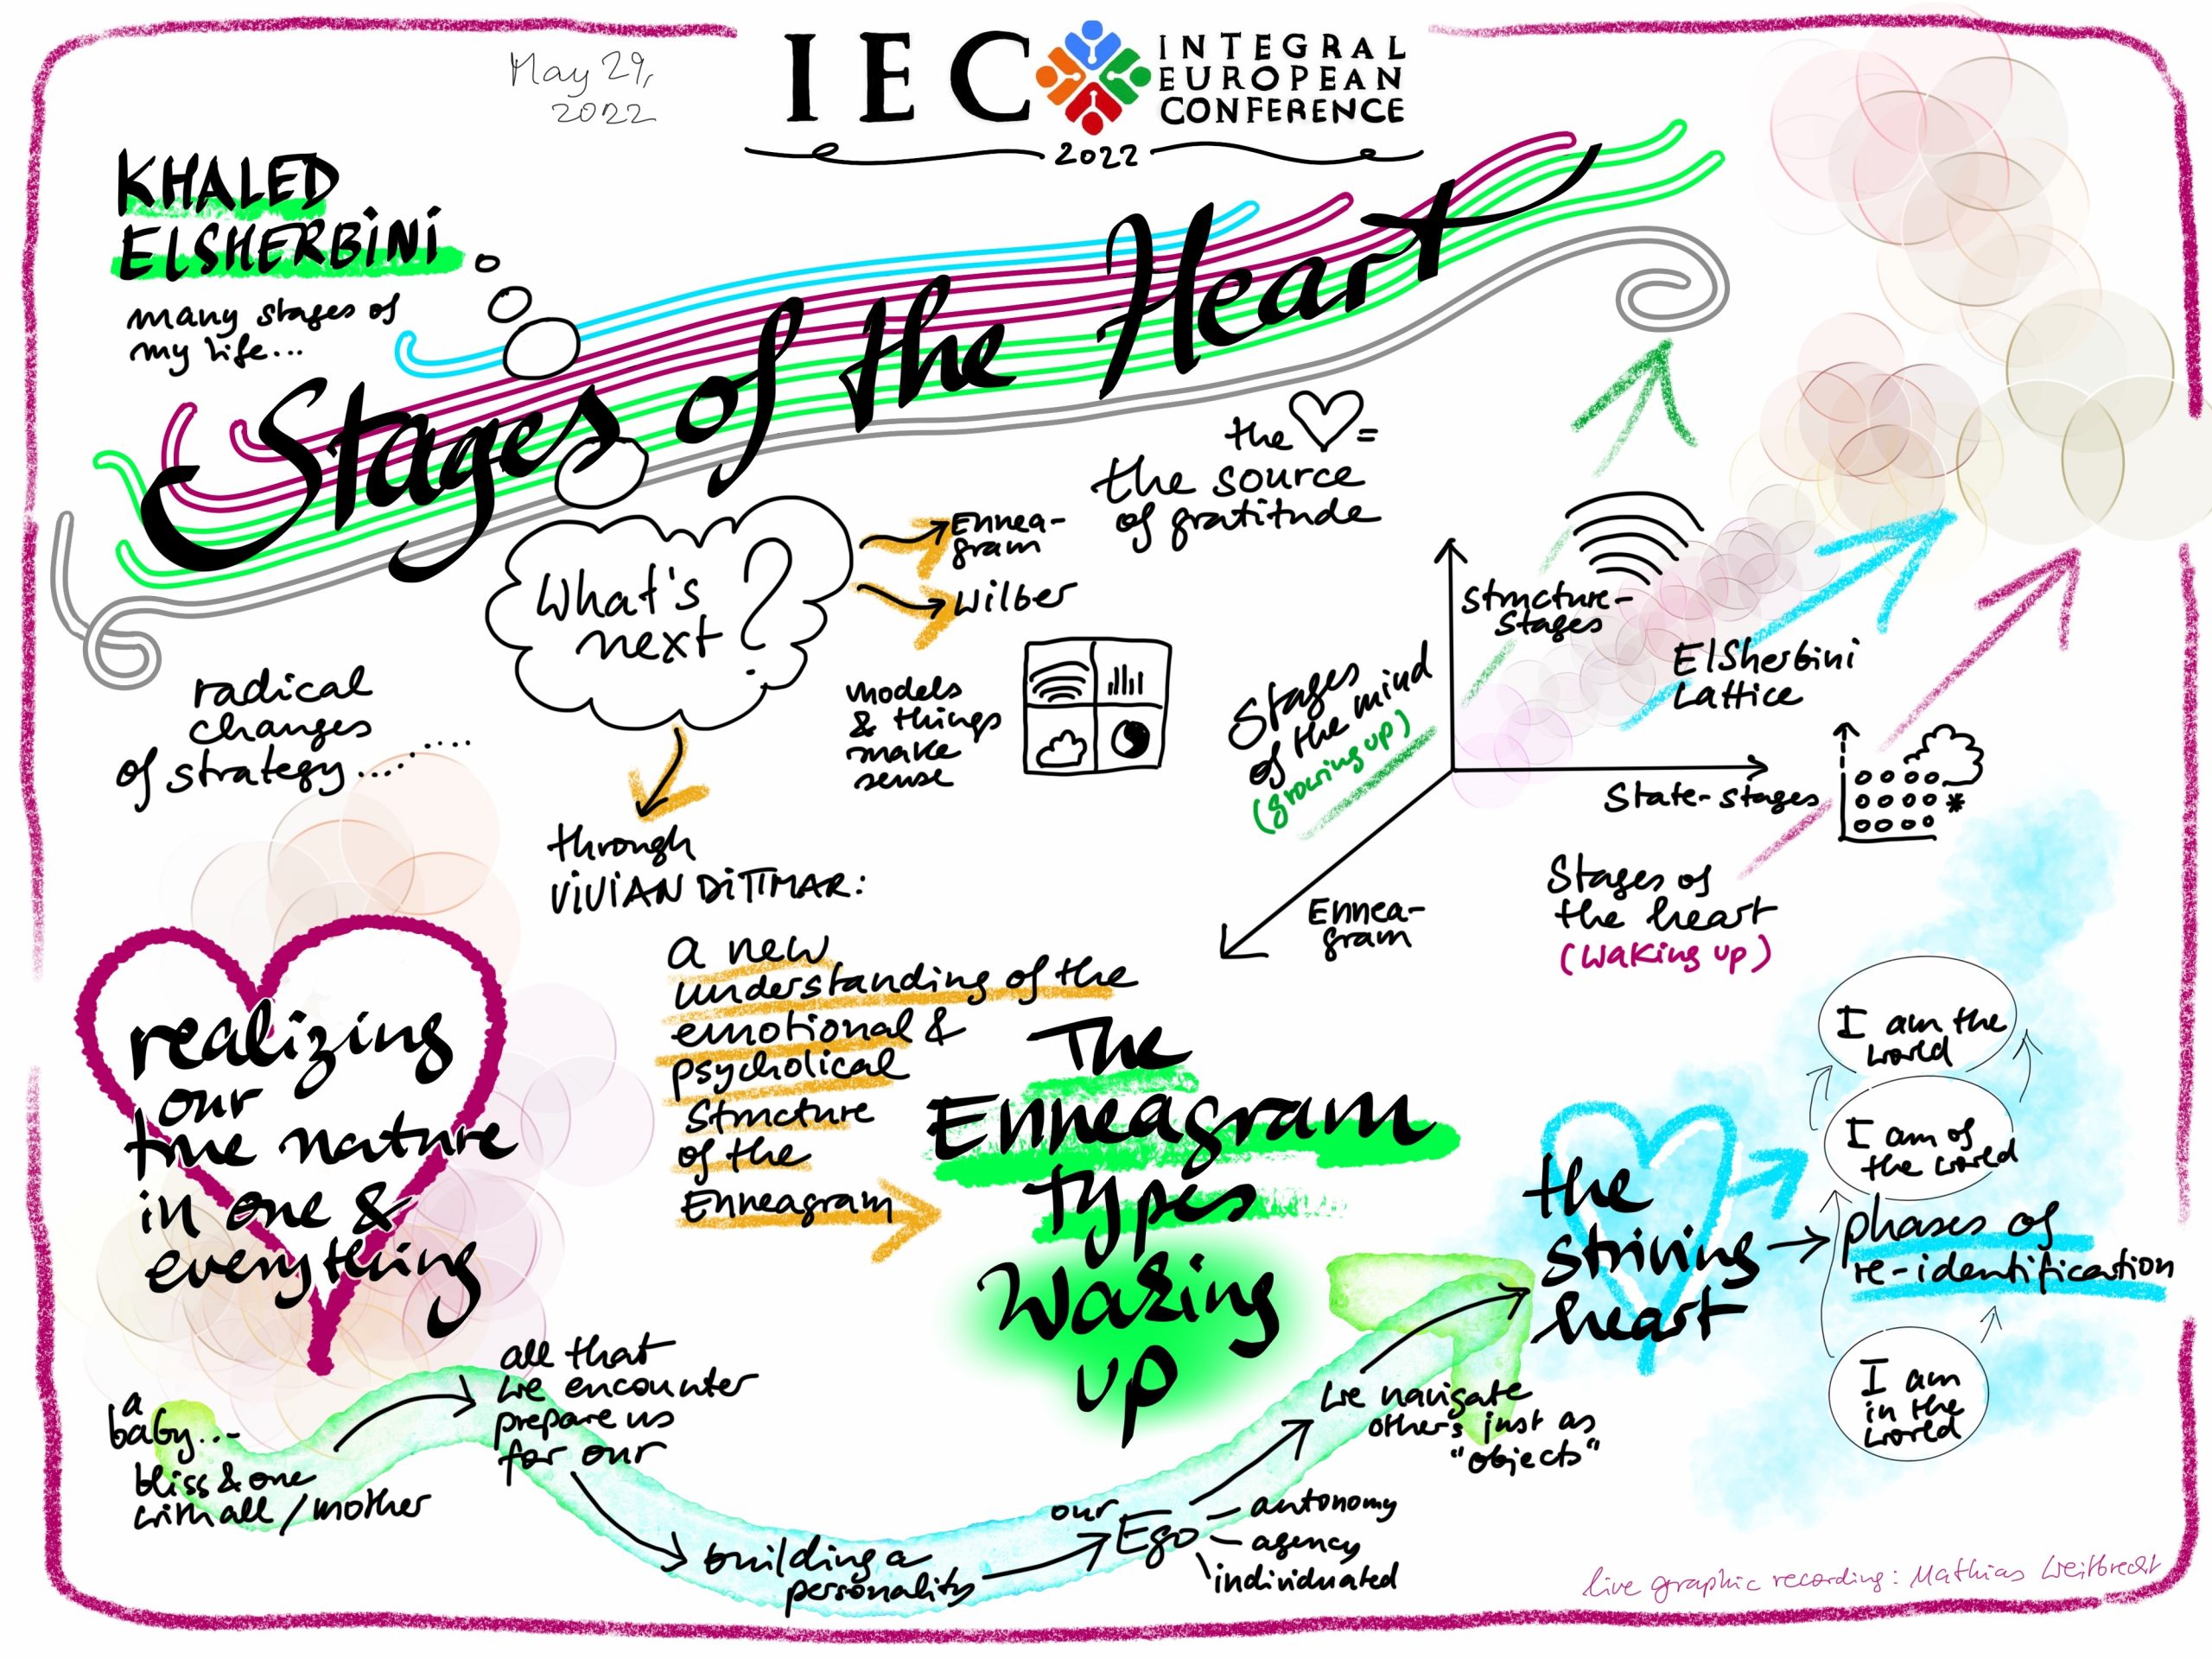 May 29,
2022
IEC
INTEGRAL
EUROPEAN
CONFERENCE
2022
KHALED
ELSHERBINI
many stages of
my life...
Stages of the Heart
the ♡=
the source
of gratitude
What's
next?
Ennea-
gram
Wilber
models
& things
make
sense
radical
changes
of strategy.........
through
VIVIAN DITTMAR:
a new
understanding of the
emotional &
psycholical
structure
of the
Enneagram
Structure-
Stages
Stages
of the mind
(growing up)
ElSherbini
Lattice
State-stages
Stages of
the heart
(waking up)
Ennea-
gram
realizing
our
true nature
in one &
everything
The
Enneagram
Types
Waking
up
the
striving
heart
I am the
world
I am of
the world
phases of
re-identification
I am
in the
world
a
baby...
bliss & one
with all / mother
all that
we encounter
prepare us
for our
building a
personality
our
Ego
autonomy
agency
individuated
we navigate
others just as
"objects"
live graphic recording: Mathias Weitbrecht